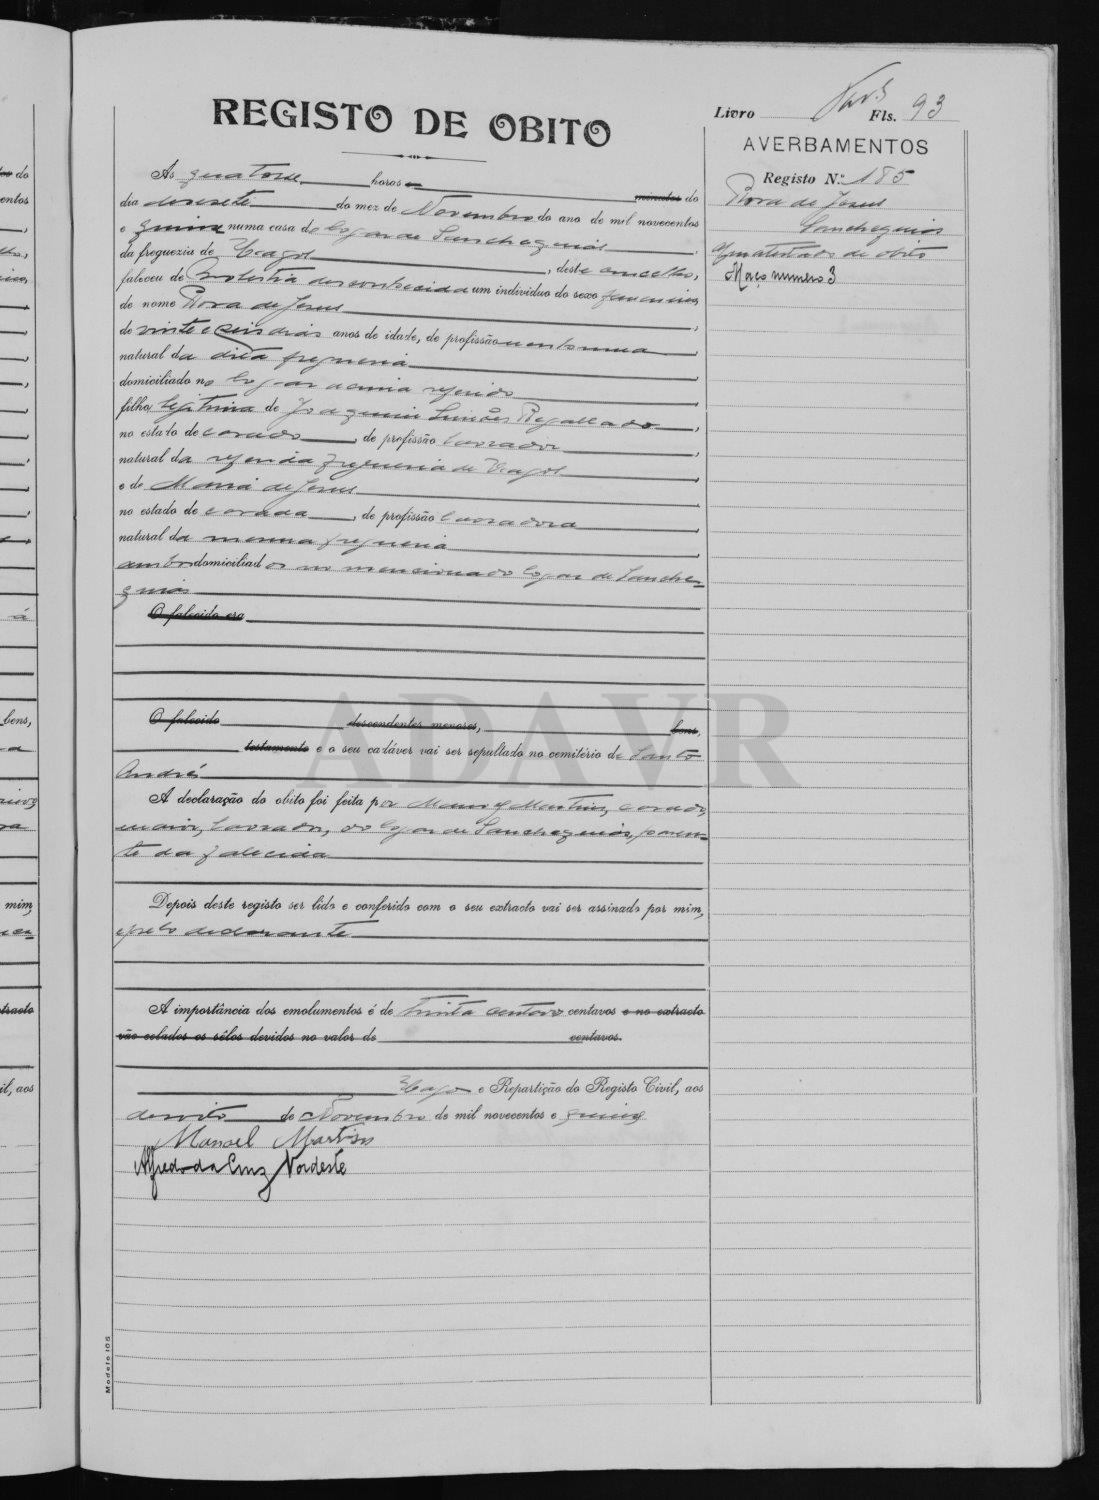 REGISTO DE OBITO
Livro Fls. 93
AVERBAMENTOS
Registo N.º 185
Rosa de Jesus
Sanchequias
atestado de obito
Maço numero 3
Ás quatorze horas e minutos do
dia dezesete do mez de Novembro do ano de mil novecentos
e quinze numa casa do logar de Sanchequias
da freguezia de Vagos, deste concelho,
faleceu de molestia desconhecida um individuo do sexo femenino
de nome Rosa de Jesus,
de vinte e seis dias anos de idade, de profissão nenhuma,
natural da dita freguesia,
domiciliado no logar acima referido,
filha legitima de Joaquim Simões Regallado,
no estado de casado, de profissão lavrador,
natural da referida freguesia de Vagos,
e de Maria de Jesus,
no estado de casada, de profissão lavradora,
natural da mesma freguesia,
ambos domiciliados no mencionado logar de Sanche-
quias
O falecido era
O falecido descendentes menores, bens,
testamento e o seu cadáver vai ser sepultado no cemitério de Santo
André
A declaração do obito foi feita por Manoel Martins, casado,
maior, lavrador, do logar de Sanchequias, paren-
te da falecida
Depois deste registo ser lido e conferido com o seu extracto vai ser assinado por mim,
e pelo declarante
A importância dos emolumentos é de trinta centavos centavos e no extracto
vão colados os sêlos devidos no valor de centavos.
Vagos e Repartição do Registo Civil, aos
dezoito de Novembro de mil novecentos e quinze
Manoel Martins
Alfredo da Cruz Nordeste
Modelo 105
ADAVR